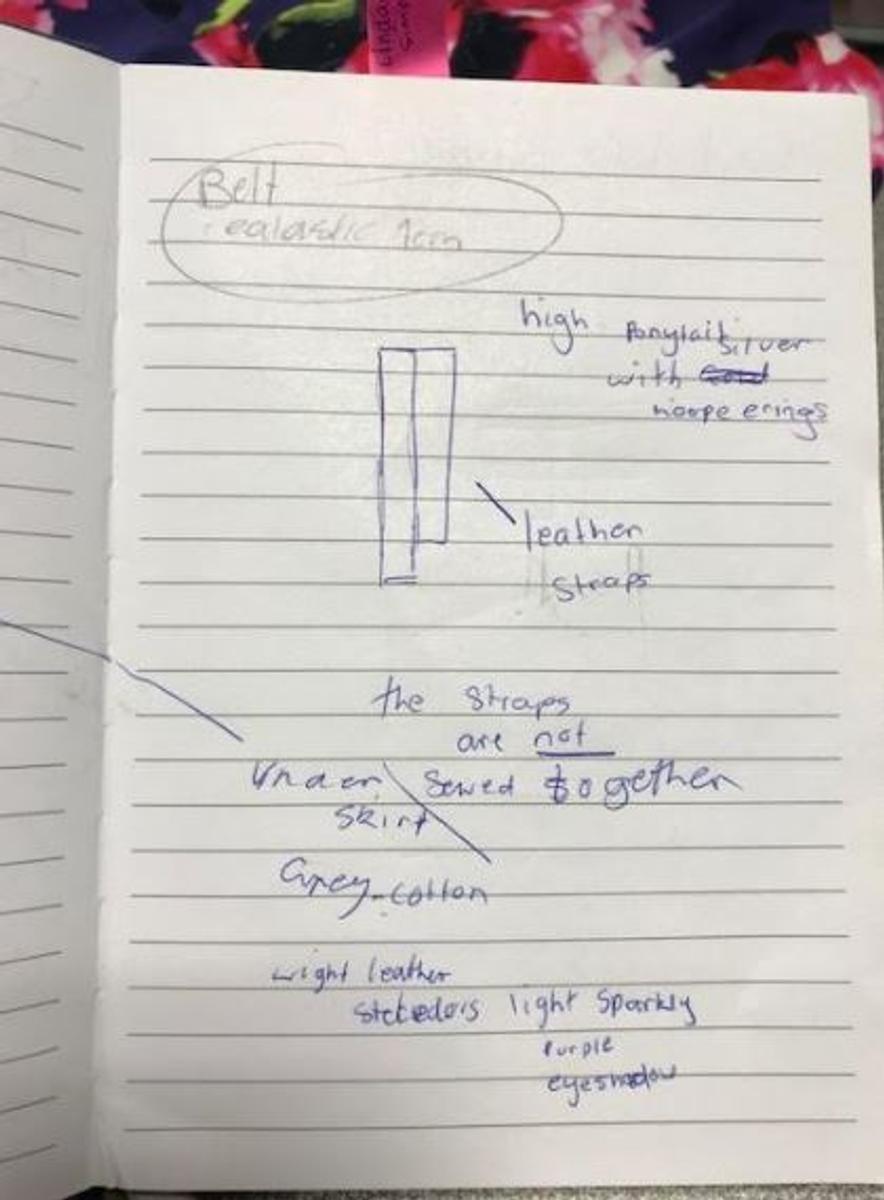 Belt
ealastic 1cm
high Ponytail silver
with
hoope erings
leather
straps
the straps
are not
Under sewed together
skirt
Grey-cotton
wight leather
light sparkly
purple
eyeshadow